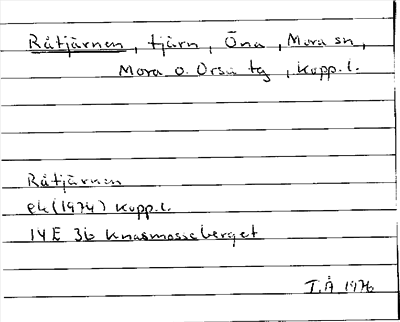 Råtjärnen, tjärn, Öna, Mora sn,
Mora o. Orsa tg, Kopp. l.
Råtjärnen
ek (1974) Kopp. l.
14E 3b Knasmosseberget
T.Å 1976